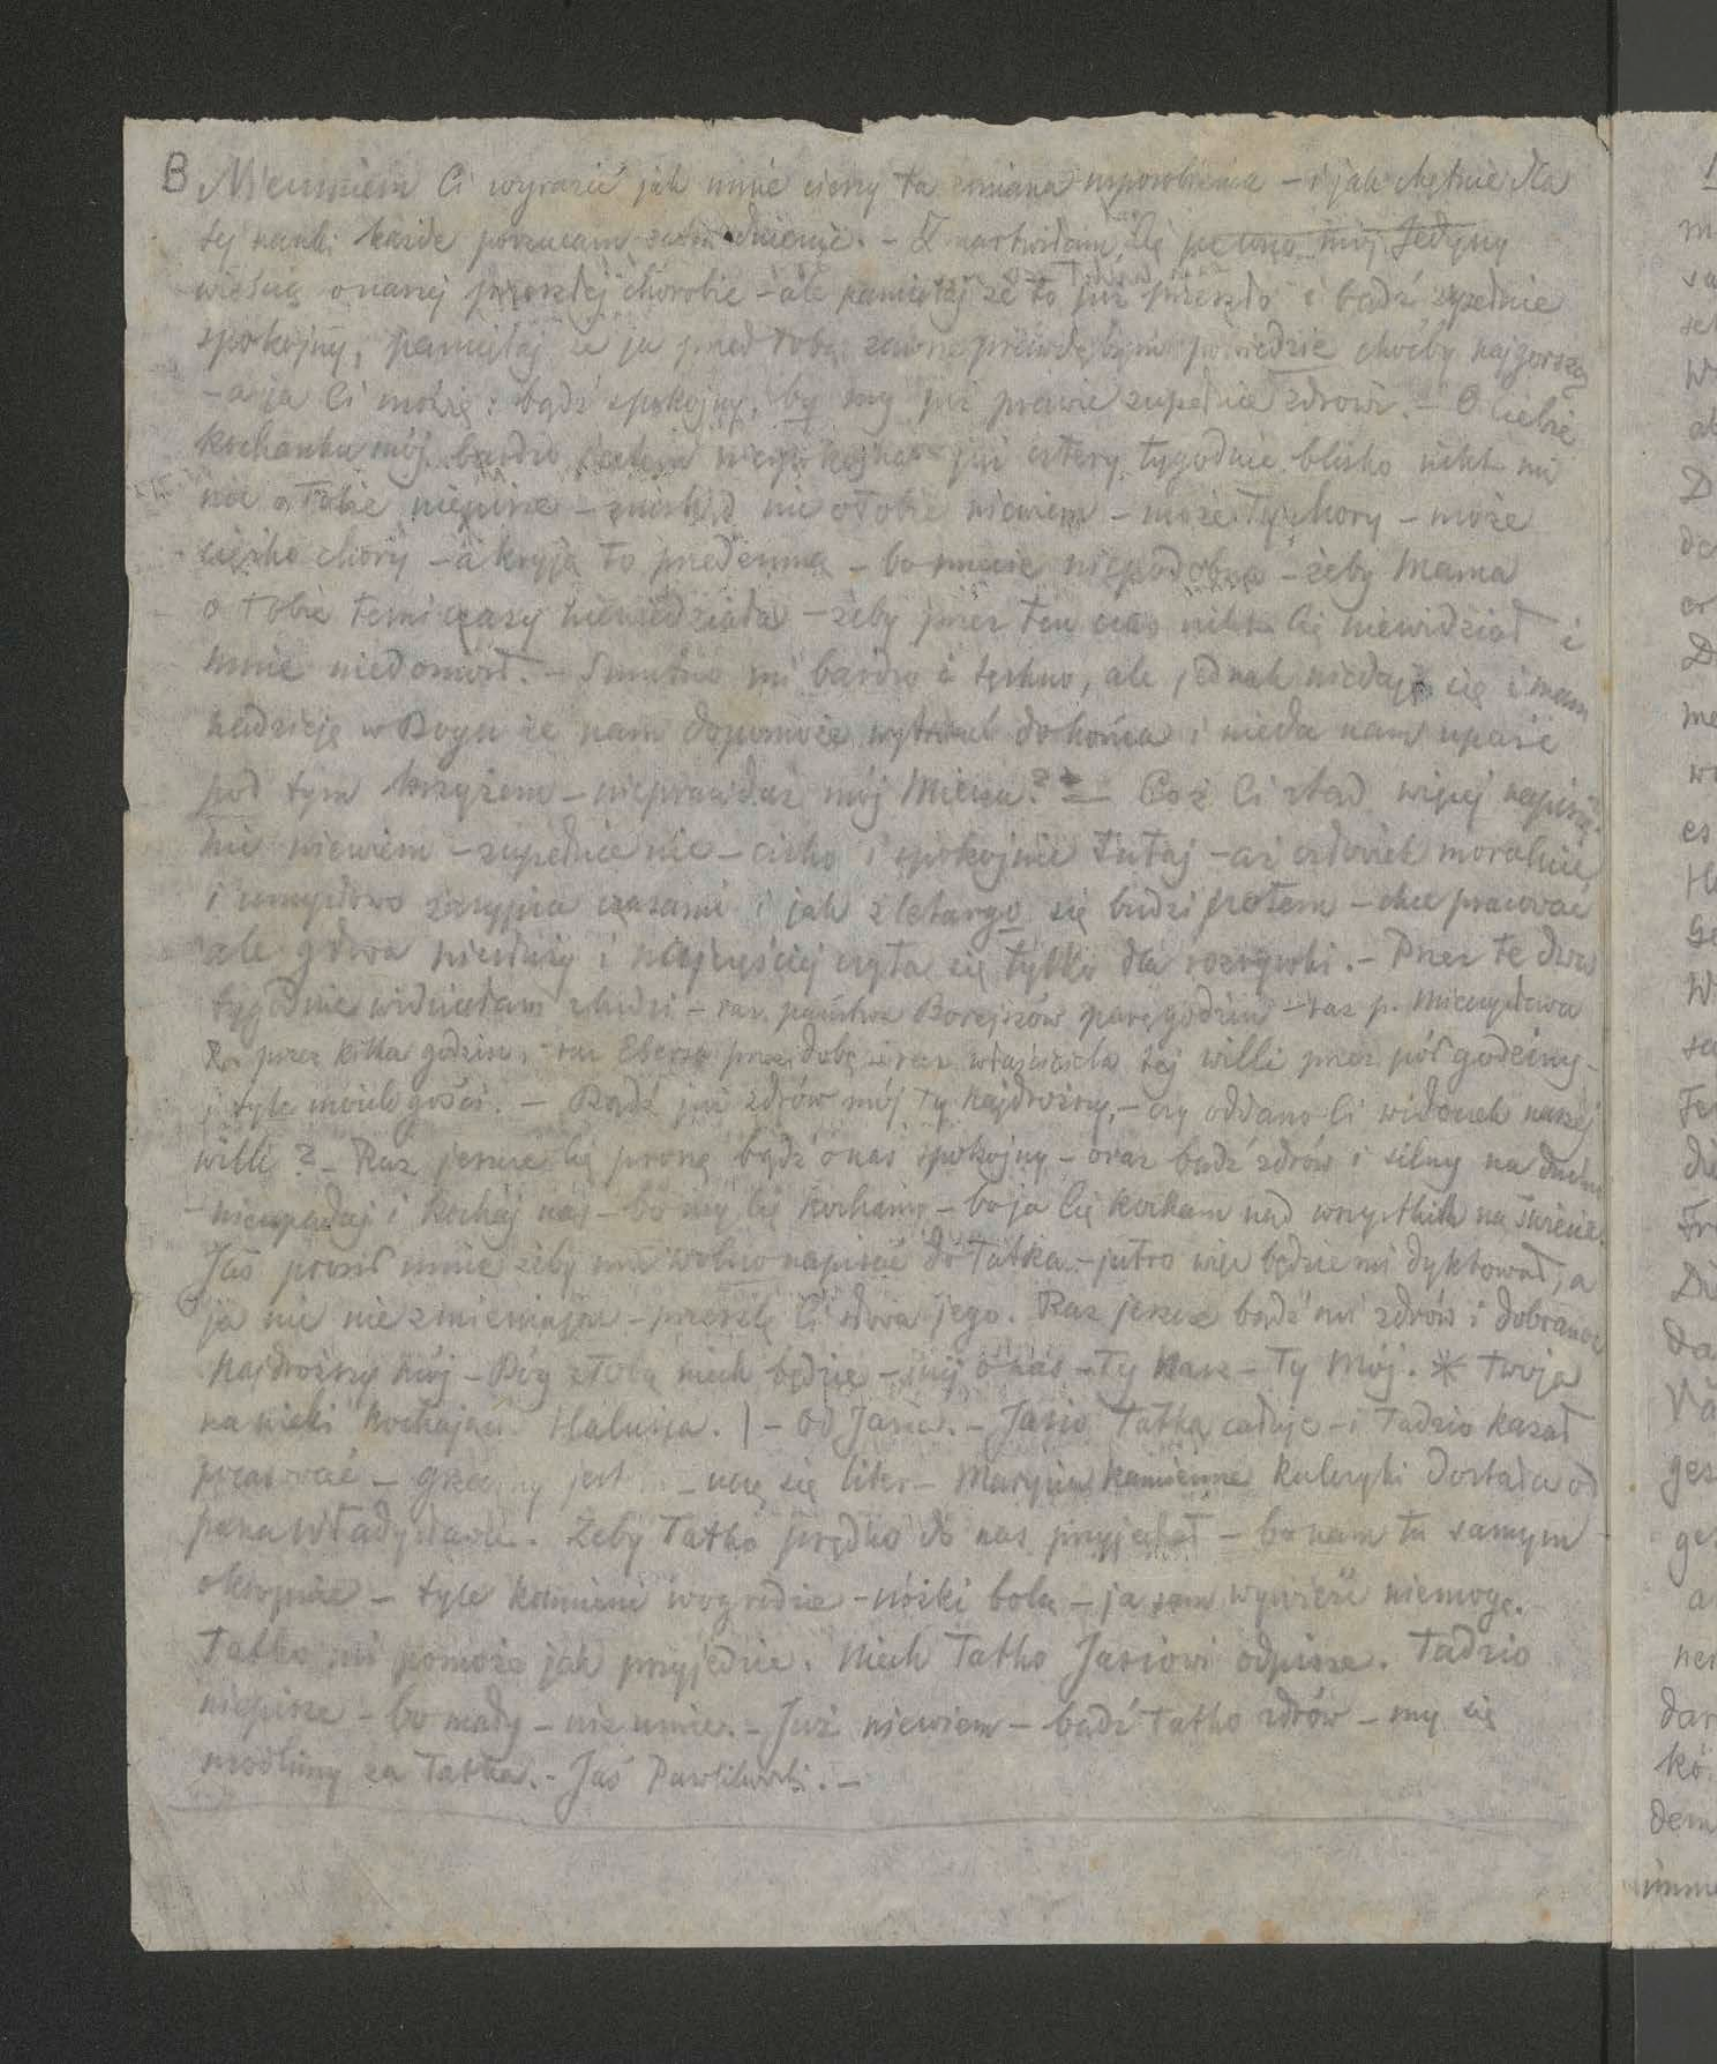 B Nieumiem Ci wyrazić jak mnie cieszy ta zmiana usposobienia – i jak chętnie dla
tej nauki każde porzucam zatrudnienie. – Zmartwiłam Cię pewno mój Jedyny
wieścią o naszej przeszłej chorobie – ale pamiętaj że to już przeszło i bądź zupełnie
spokojny, pamiętaj że ja przed Tobą zawsze prawdę bym powiedzie choćby najgorszą
– a ja Ci mówię: bądź spokojny, bo my już prawie zupełnie zdrowi. – O Ciebie
kochanku mój bardzo jestem niespokojna – już cztery tygodnie blisko nikt mi
nic o Tobie niepisze – znikąd nic o Tobie niewiem – może Tyś chory – może
ciężko chory – a kryją to przedemną – bo niepodobna – żeby Mama
o Tobie temi czasy niewiedziała – żeby przez ten czas nikt Cię niewidział i
mnie niedoniósł. – Smutno mi bardzo i tęskno, ale jednak niedaję się i mam
nadzieję w Bogu że nam dopomoże wytrwać do końca i nieda nam upaść
pod tym krzyżem – nieprawdaż mój Mieciu? – Cóż Ci ztąd więcej napiszę?
nic niewiem – zupełnie nic – cicho i spokojnie tutaj – aż człowiek moralnie
i umysłowo zasypia czasami i jak z letargo się budzi potem – chce pracować
ale głowa niesłuży i najczęściej czyta się tylko dla rozrywki. – Przez te dwa
tygodnie widziałam z ludzi – raz państwa Borejszów parę godzin – raz p. Mieczysława
R. przez kilka godzin, raz Ebersa przez dobę i raz właściciela tej willi przez pół godziny –
i tyle moich gości. – Bądź już zdrów mój Ty najdroższy, – czy oddano Ci widoczek naszej
willi? – Raz jeszcze Cię proszę bądź o nas spokojny – oraz bądź zdrów i silny na duchu
– nieupadaj i kochaj nas – bo my Cię kochamy – bo ja Cię kocham nad wszystkich na świecie.
Jaś prosił mnie żeby mu wolno napisać do Tatka – jutro więc będzie mi dyktował, a
ja nic nie zmieniając – prześlę Ci słowa jego. Raz jeszcze bądź mi zdrów i dobranoc
najdroższy mój – Bóg z Tobą niech będzie – śnij o nas – Ty Nasz – Ty Mój. * Twoja
na wieki kochająca Halusia. | – Od Jasia. – Jasio Tatka całuje – i Tadzio kazał
pocałować – grzeczny jest – uczę się liter – Marynia kamienne kulczyki dostała od
pana Władysława. Żeby Tatko prędko do nas przyjechał – bo nam tu samym
okropnie – tyle kamieni w ogrodzie – nóżki bolą – ja sam wywieźć niemogę.
Tatko mi pomoże jak przyjedzie. Niech Tatko Jasiowi odpisze. Tadzio
niepisze – bo mały – nie umie. – Już niewiem – bądź Tatko zdrów – my się
modlimy za Tatka. – Jaś Pawlikowski. –